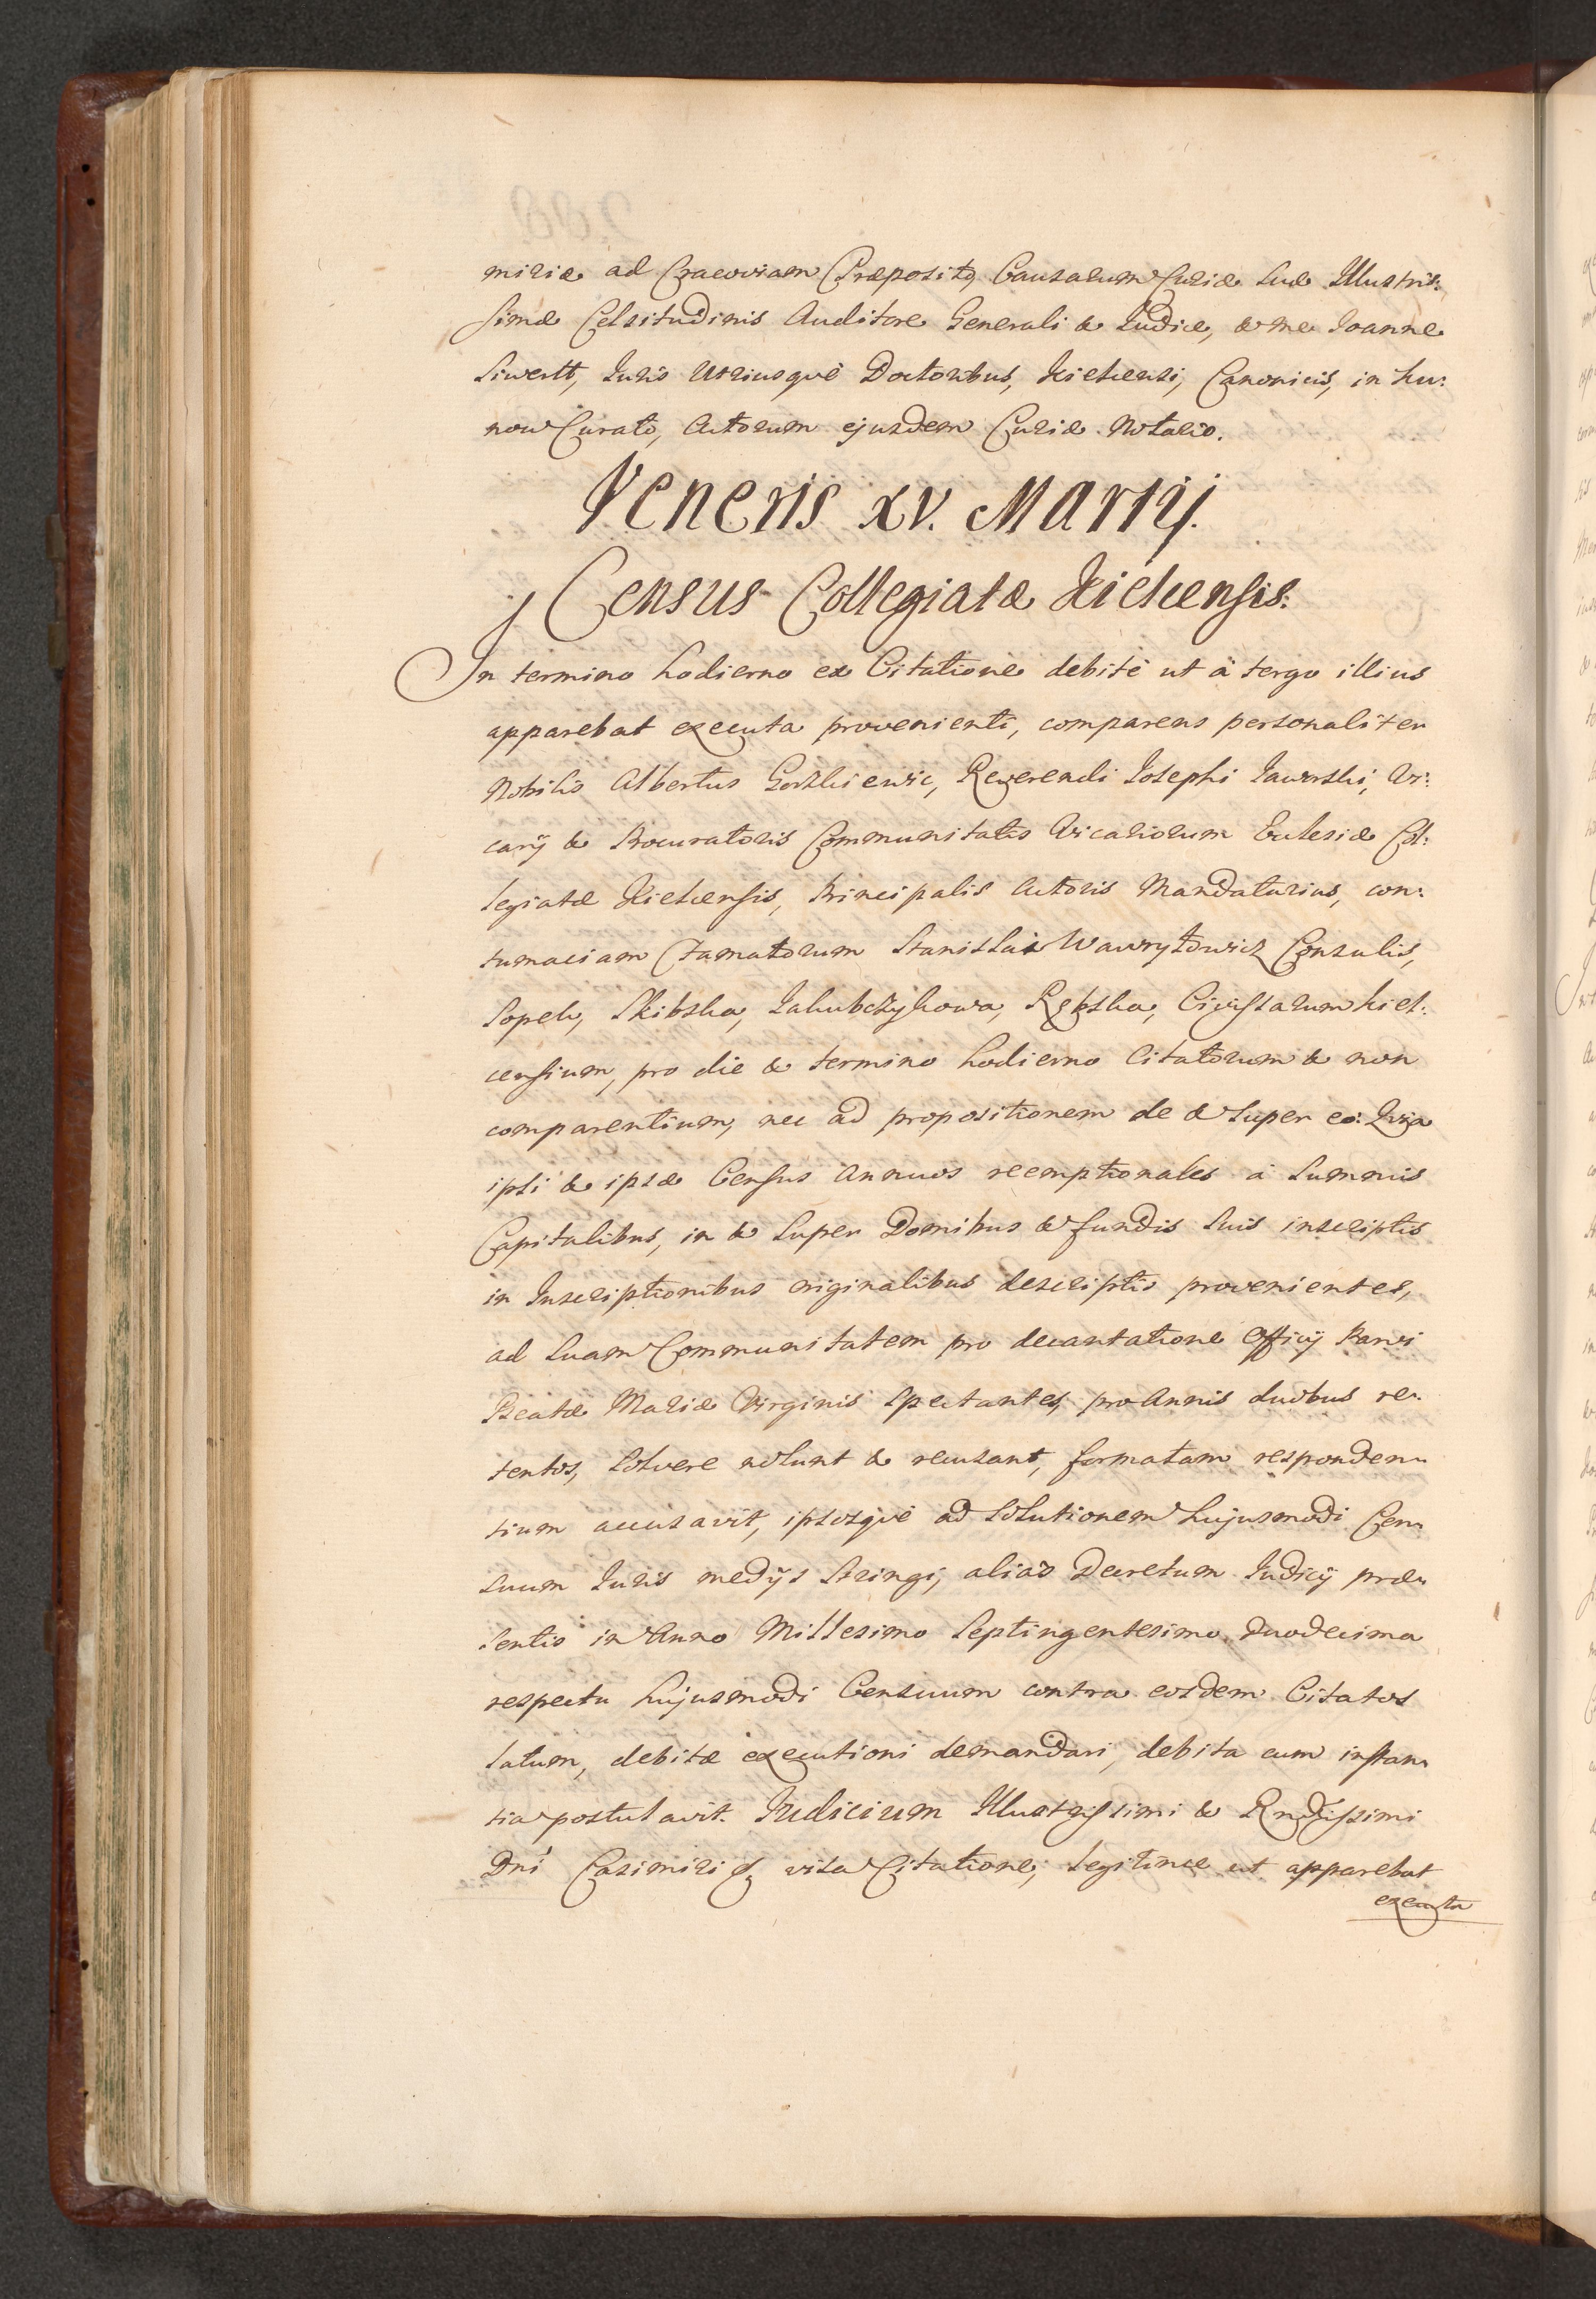 miriæ ad Cracoviam Præposito, Causarum Curiæ Suæ Illustris:
simæ Celsitudinis Auditore Generali & Judice, & me Joanne
Siwertt, Juris Utriusquè Doctoribus, Kielcensi, Canonicis, in Lu:
now Curato, Actorum ejusdem Curiæ Notario.
Veneris XV. Martij.
Census Collegiatæ Kielcensis.
In termino hodierno ex Citatione debitè ut à tergo illius
apparebat executa provenienti, comparens personaliter
Nobilis Albertus Gorzkiewic, Reverendi Josephi Jaworski, Vi:
carij & Procuratoris Communitatis Vicariorum Ecclesiæ Col:
legiatæ Kielcensis, Principalis Actoris Mandatarius, con:
tumaciam Famatorum Stanislai Wawrytowicz Consulis,
Sopek, Skibska, Jakubczykowa, Rębska, Civissarum Kiel:
censium, pro die & termino hodierno Citatorum & non
comparentium, nec ad propositionem de & super eo: Quia
ipsi & ipsæ Census Annuos reemptionales à Summis
Capitalibus, in & super Domibus & fundis suis inscriptis
in Inscriptionibus originalibus descriptis provenientes,
ad suam Communitatem pro decantatione Officij Parvi
Beatæ Mariæ Virginis spectantes, pro Annis duobus re:
tentos, solvere nolunt & recusant, formatam responden:
tium accusavit, ipsosquè ad solutionem hujusmodi Cen:
suum Juris medijs stringi, aliàs Decretum Judicij præ:
sentis in Anno Millesimo Septingentesimo Duodecimo
respectu hujusmodi Censuum contra eosdem Citatos
latum, debitæ executioni demandari, debita cum instan:
tia postulavit. Judicium Illustrissimi & Rndissimi
Dni Casimiri & visa Citatione, legitimè ut apparebat
executa